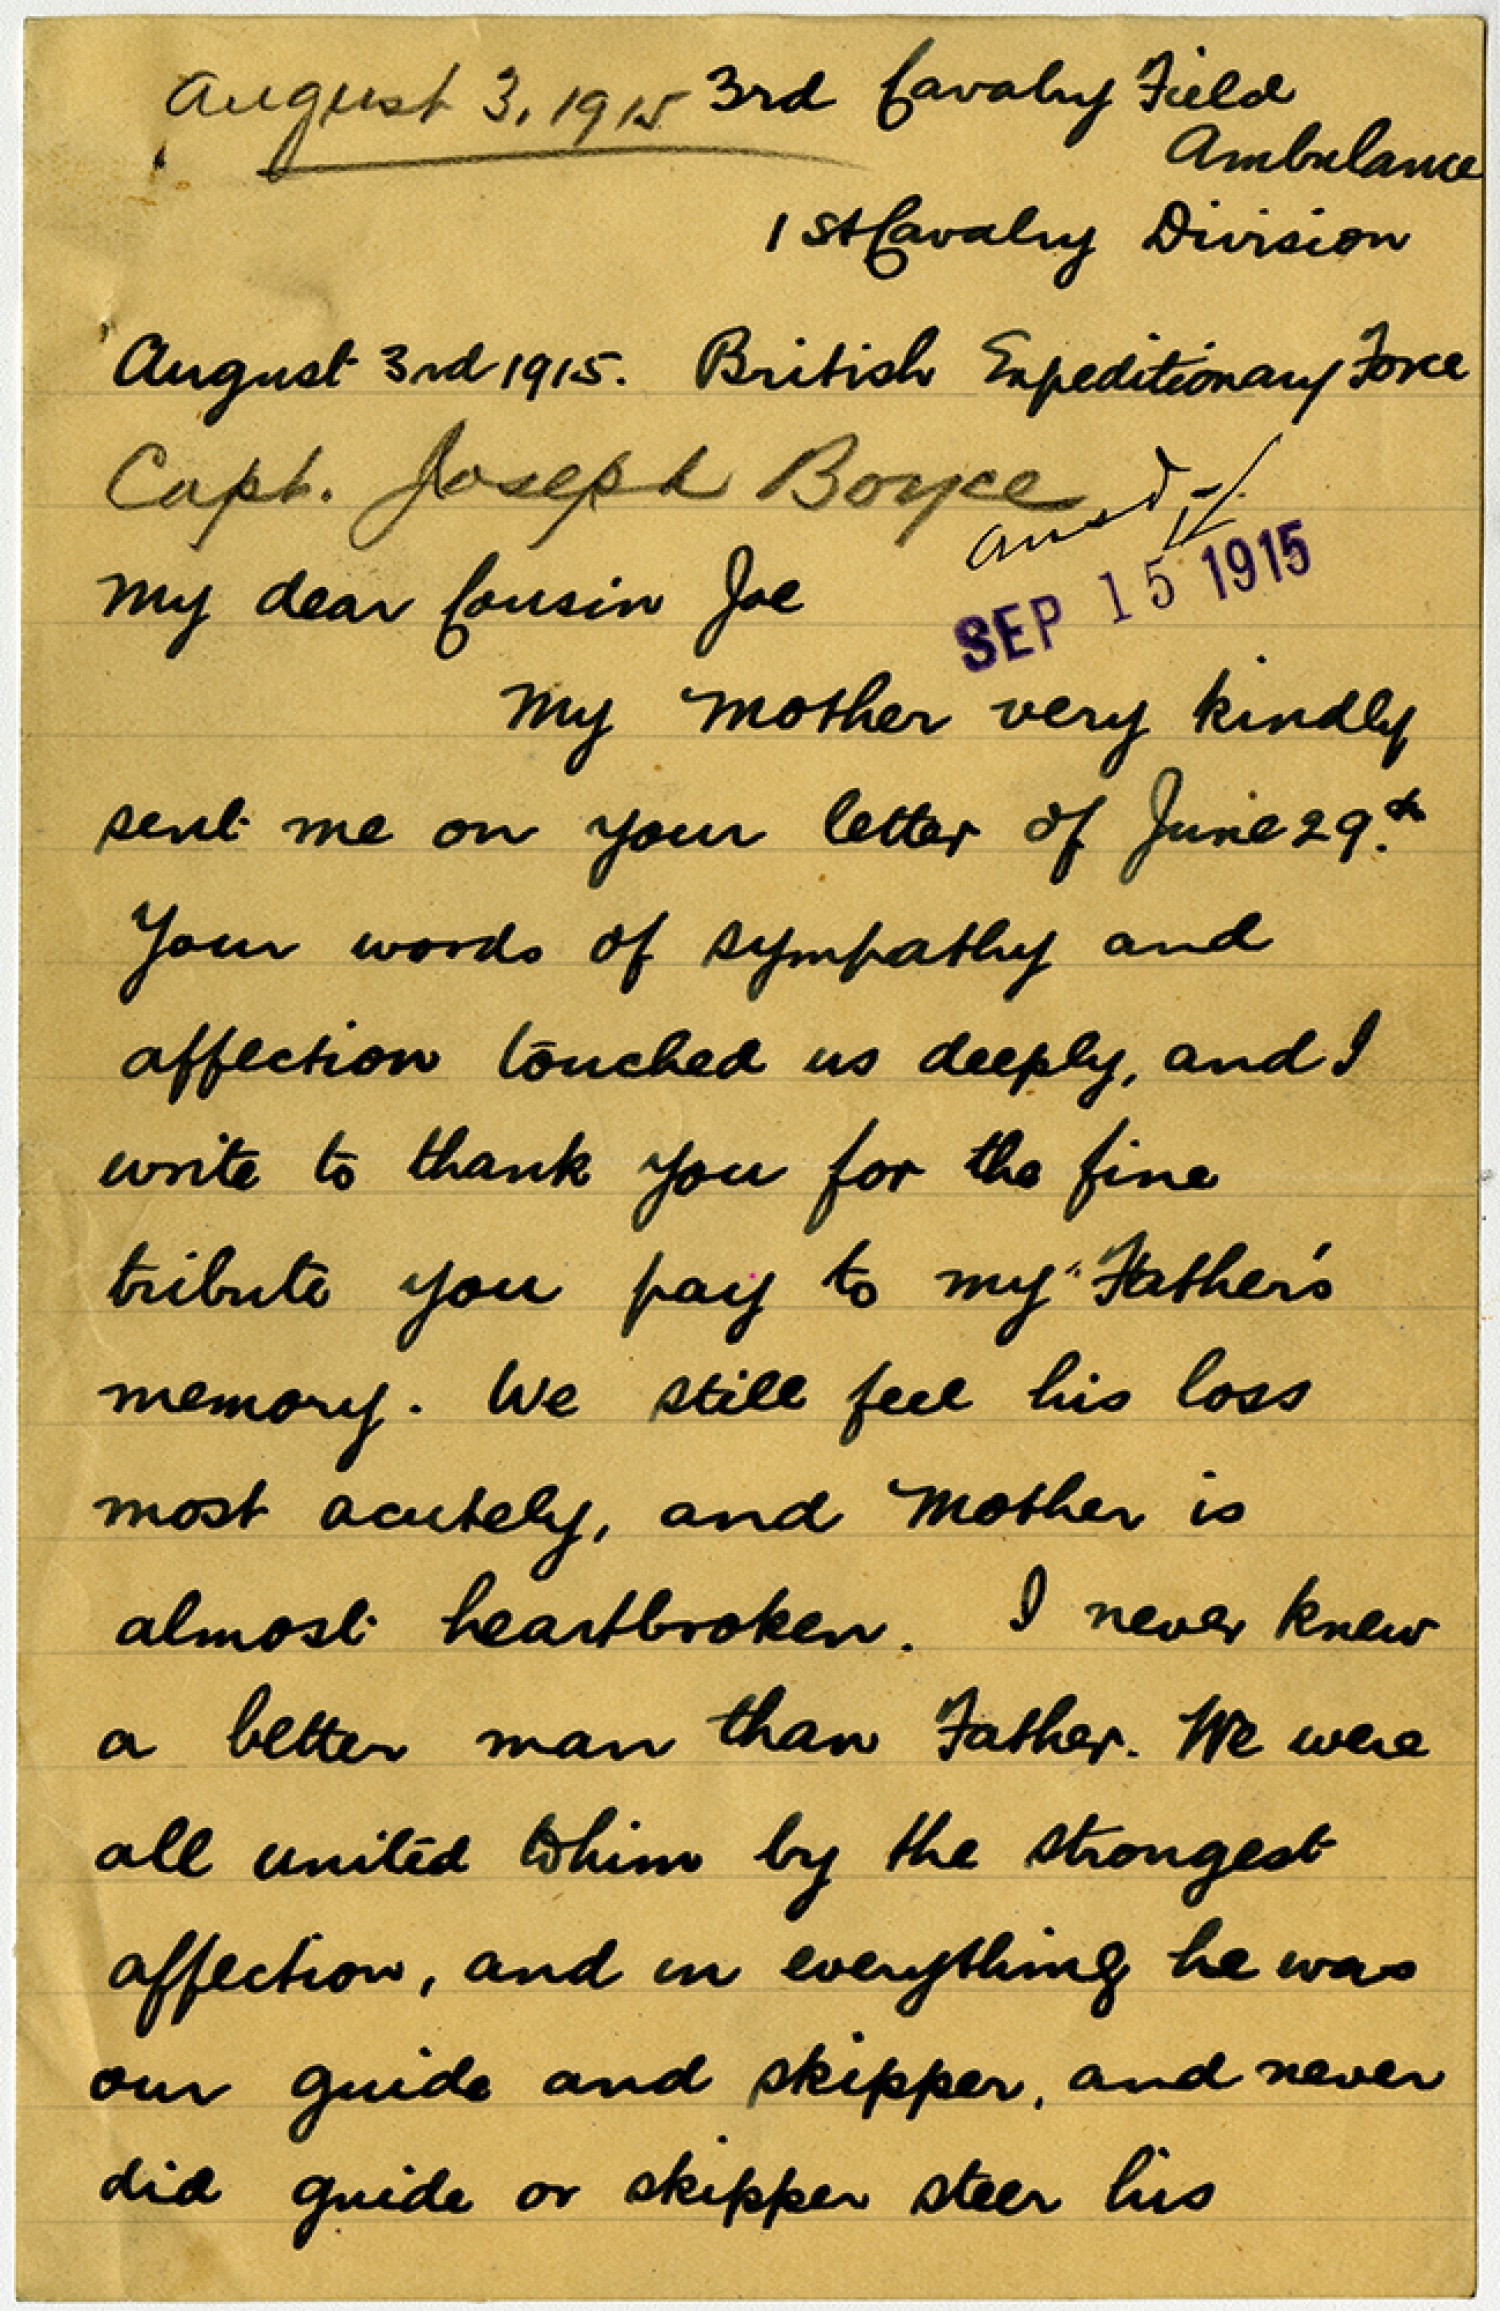 August 3, 1915 3rd Cavalry Field
Ambulance
1st Cavalry Division
August 3rd 1915. British Expeditionary Force
Capt. Joseph Boyce
Ansd
My dear Cousin Joe
SEP 15 1915
My Mother very kindly
sent me on your letter of June 29.th
Your words of sympathy and
affection touched us deeply, and I
write to thank you for the fine
tribute you pay to my Father's
memory. We still feel his loss
most acutely, and Mother is
almost heartbroken. I never knew
a better man than Father. We were
all united to him by the strongest
affection, and in everything he was
our guide and skipper, and never
did guide or skipper steer his